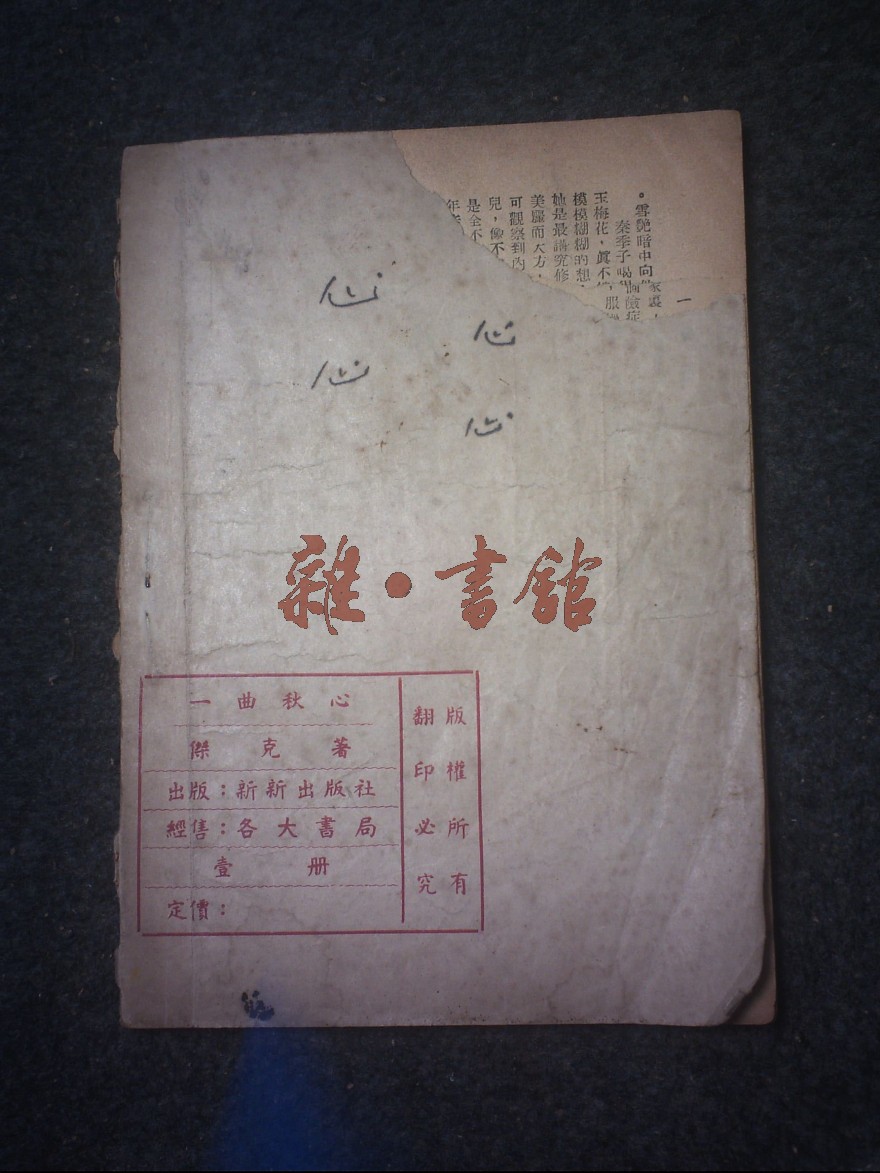 一
家裏，
。雪艷暗中向
秦季子喝
玉梅花，眞不
模模糊糊的想，
她是最講究修
美麗而大方，
可觀察到內
兒，像不
是全不
年
心
心
心
心
雜•書館
一曲秋心
傑克著
出版：新新出版社
經售：各大書局
壹册
定價：
版權所有
翻印必究